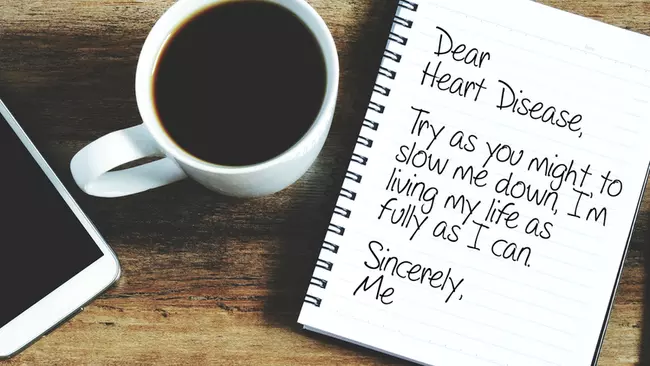 Dear
Heart Disease,
Try as you might to
slow me down, I'm
living my life as
fully as I can.
Sincerely,
Me